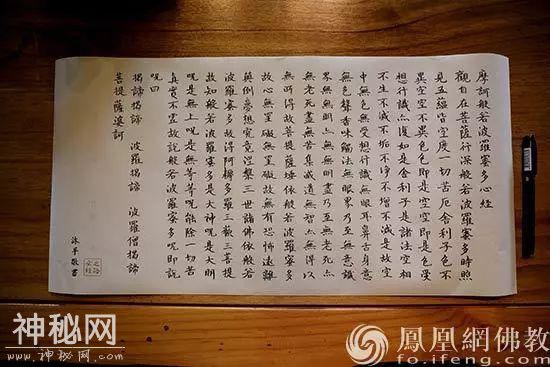 摩訶般若波羅蜜多心經
觀自在菩薩行深般若波羅蜜多時照
見五蘊皆空度一切苦厄舍利子色不
異空空不異色色即是空空即是色受
想行識亦復如是舍利子是諸法空相
不生不滅不垢不淨不增不減是故空
中無色無受想行識無眼耳鼻舌身意
無色聲香味觸法無眼界乃至無意識
界無無明亦無無明盡乃至無老死亦
無老死盡無苦集滅道無智亦無得以
無所得故菩提薩埵依般若波羅蜜多
故心無罣礙無罣礙故無有恐怖遠離
顛倒夢想究竟涅槃三世諸佛依般若
波羅蜜多故得阿耨多羅三藐三菩提
故知般若波羅蜜多是大神呪是大明
呪是無上呪是無等等呪能除一切苦
真實不虛故說般若波羅蜜多呪即說
呪曰
揭諦揭諦 波羅揭諦 波羅僧揭諦
菩提薩婆訶
沐平敬書
神秘网
WWW.神秘网.COM
鳳凰網佛教
fo.ifeng.com